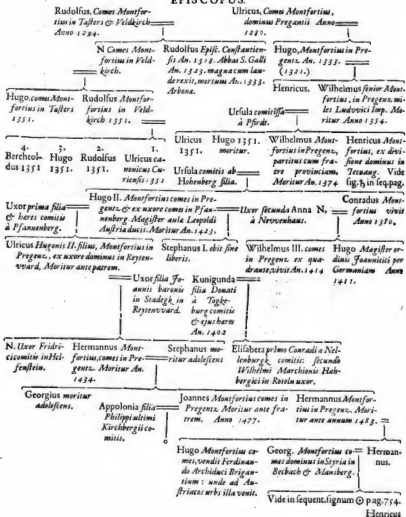 EPISCOPUS.
Rudolfus, Comes Montfor-
tius in Tasters & Veldkirch
Anno 1294.
Ulricus, Comes Montfortius,
dominus Pregantii Anno
1280.
N Comes Mont-
fortius in Veld-
kirch.
Rudolfus Episc. Constantien-
sis An. 1318. Abbas S. Galli
An. 1323. magna cum lau-
de rexit, mortuus An. 1333.
Arbona.
Hugo, Montfortius in Pre-
gentz. An. 1333.
(1321.)
Hugo, comes Mont-
fortius in Tasters
1351.
Rudolfus Montfor-
tius in Veld-
kirch 1351.
Henricus.
Wilhelmus senior Mont-
fortius, in Pregenz. mi-
les Ludovici Imp. Mo-
ritur Anno 1354.
Ursula comitissa
à Pfirdt.
4.
Berchtol-
dus 1351
3.
Hugo
1351.
2.
Rudolfus
1351.
1.
Ulricus ca-
nonicus Cu-
riensis 1351
Ulricus
1351.
Hugo 1351.
moritur.
Ursula comitis ab
Hohenberg filia.
Wilhelmus Mont-
fortius in Pregenz,
partitus cum fra-
tre provinciam,
Moritur An. 1374
Henricus Mont-
fortius, ex divi-
sione dominus in
Tetnang. Vide
sig. ♄ in seq. pag.
Uxor prima filia
& heres comitis
à Pfannenberg.
Hugo II. Montfortius comes in Pre-
gentz. & ex uxore comes in Pfan-
nenberg. Magister aulæ Leopoldi
Austriæ ducis. Moritur An. 1423.
Uxor secunda Anna
à Nevvenhaus.
N.
Conradus Mont-
fortius vivit
Anno 1380.
Ulricus Hugonis II. filius, Montfortius in
Pregenz, ex uxore dominus in Reyten-
vvard, Moritur ante patrem.
Stephanus I. obit sine
liberis.
Wilhelmus III. comes
in Pregenz ex qua-
drante, vivit An. 1414
Hugo Magister or-
dinis Joannitici per
Germaniam Anno
1411.
Uxor filia Jo-
annis baronis
in Stadegk in
Reytenvvard.
Kunigunda
filia Donati
à Togke-
burg comitis
& ejus hæres
An. 1402
N. Uxor Fridri-
ci comitis in Hel-
fenstein.
Hermannus Mont-
fortius, comes in Pre-
gentz. Moritur An.
1434.
Stephanus mo-
ritur adolescens
Elisabeta primo Conradi à Nel-
lenburgk comitis: secundò
Wilhelmi Marchionis Hah-
bergici in Roteln uxor.
Georgius moritur
adolescens.
Appolonia filia
Philippi ultimi
Kirchbergii co-
mitis.
Joannes Montfortius comes in
Pregentz Moritur ante fra-
trem. Anno 1477.
Hermannus Montfor-
tius in Pregenz. Mori-
tur ante annum 1483.
Hugo Montfortius co-
mes, vendit Ferdinan-
do Archiduci Brigan-
tium: unde ad Au-
striacos urbs illa venit.
Georg. Montfortius co-
mes dominus in Styria in
Beckach & Mansberg.
Herman-
nus.
Vide in sequent. signum ☉ pag. 754.
Henricus